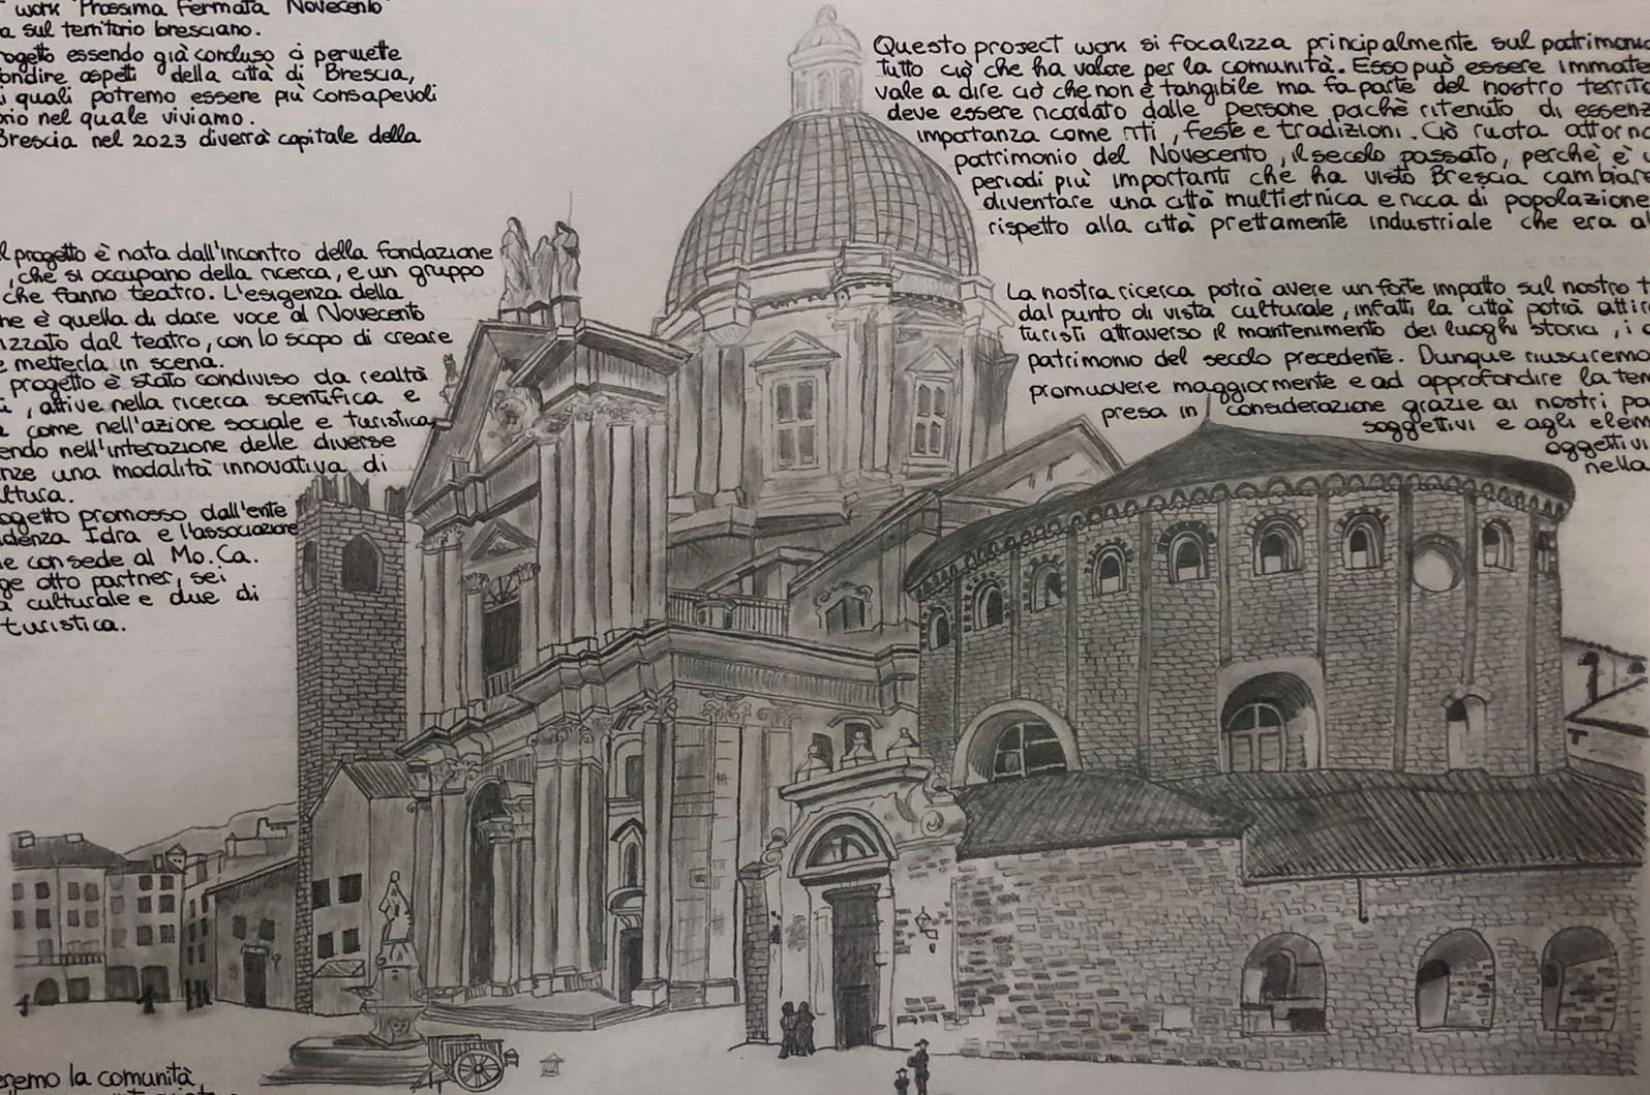 work "Prossima Fermata Novecento"
a sul territorio bresciano.
rogetto essendo già concluso ci permette
ondire aspetti della città di Brescia,
i quali potremo essere più consapevoli
orio nel quale viviamo.
Brescia nel 2023 diverrà capitale della
l progetto è nata dall'incontro della fondazione
, che si occupano della ricerca, e un gruppo
che fanno teatro. L'esigenza della
ne è quella di dare voce al Novecento
izzato dal teatro, con lo scopo di creare
e metterla in scena.
progetto è stato condiviso da realtà
i, attive nella ricerca scentifica e
a come nell'azione sociale e turistica,
endo nell'interazione delle diverse
nze una modalità innovativa di
ltura.
ogetto promosso dall'ente
idenza Idra e l'associazione
e con sede al Mo.Ca.
ge otto partner, sei
a culturale e due di
turistica.
eremo la comunità,
Questo project work si focalizza principalmente sul patrimonio
tutto ciò che ha valore per la comunità. Esso può essere immate
vale a dire ciò che non è tangibile ma fa parte del nostro territo
deve essere ricordato dalle persone pachè ritenuto di essenz
importanza come riti, feste e tradizioni. Ciò ruota attorno
patrimonio del Novecento, il secolo passato, perchè è u
periodi più importanti che ha visto Brescia cambiare
diventare una città multietnica e ricca di popolazione
rispetto alla città prettamente industriale che era a
La nostra ricerca potrà avere un forte impatto sul nostro t
dal punto di vista culturale, infatti la città potrà attir
turisti attraverso il mantenimento dei luoghi storici, i
patrimonio del secolo precedente. Dunque riusciremo
promuovere maggiormente e ad approfondire la tem
presa in considerazione grazie ai nostri pa
soggettivi e agli elem
oggettivi
nella